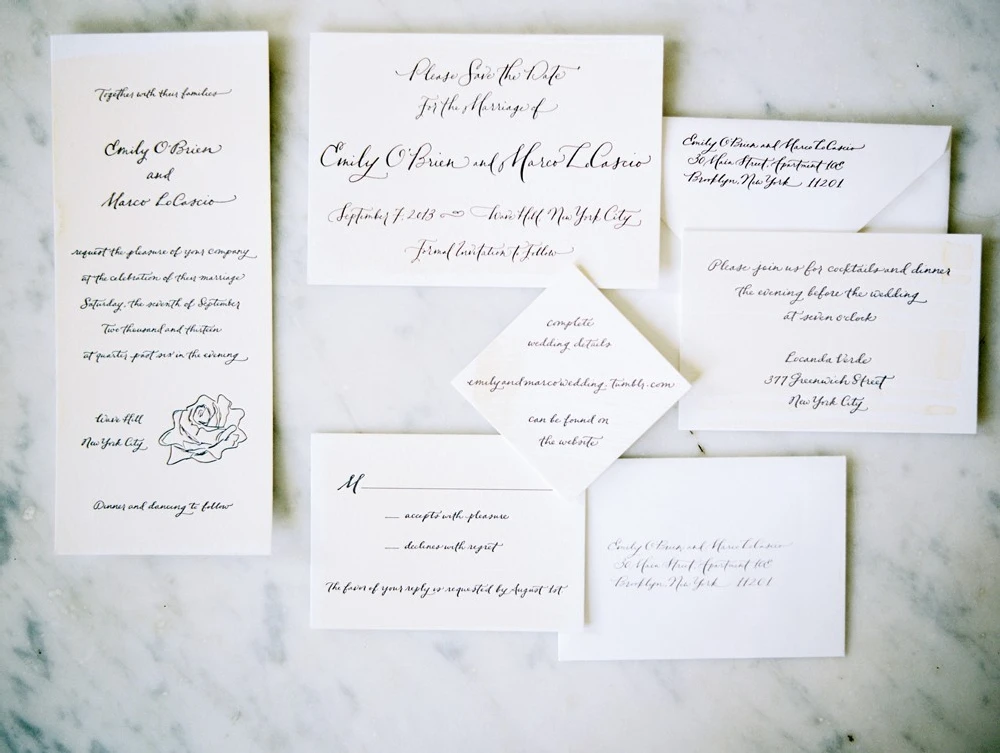 Together with their families
Emily O'Brien
and
Marco LoCascio
request the pleasure of your company
at the celebration of their marriage
Saturday, the seventh of September
Two thousand and thirteen
at quarter past six in the evening
Wave Hill
New York City
Dinner and dancing to follow
Please Save the Date
For the Marriage of
Emily O'Brien and Marco LoCascio
September 7, 2013 Wave Hill New York City
Formal Invitation to Follow
Emily O'Brien and Marco LoCascio
30 Main Street, Apartment 10E
Brooklyn, New York 11201
Please join us for cocktails and dinner
the evening before the wedding
at seven o'clock
Locanda Verde
377 Greenwich Street
New York City
complete
wedding details
emilyandmarcowedding.tumblr.com
can be found on
the website
M
accepts with pleasure
declines with regret
The favor of your reply is requested by August 1st
Emily O'Brien and Marco LoCascio
30 Main Street, Apartment 10E
Brooklyn, New York 11201